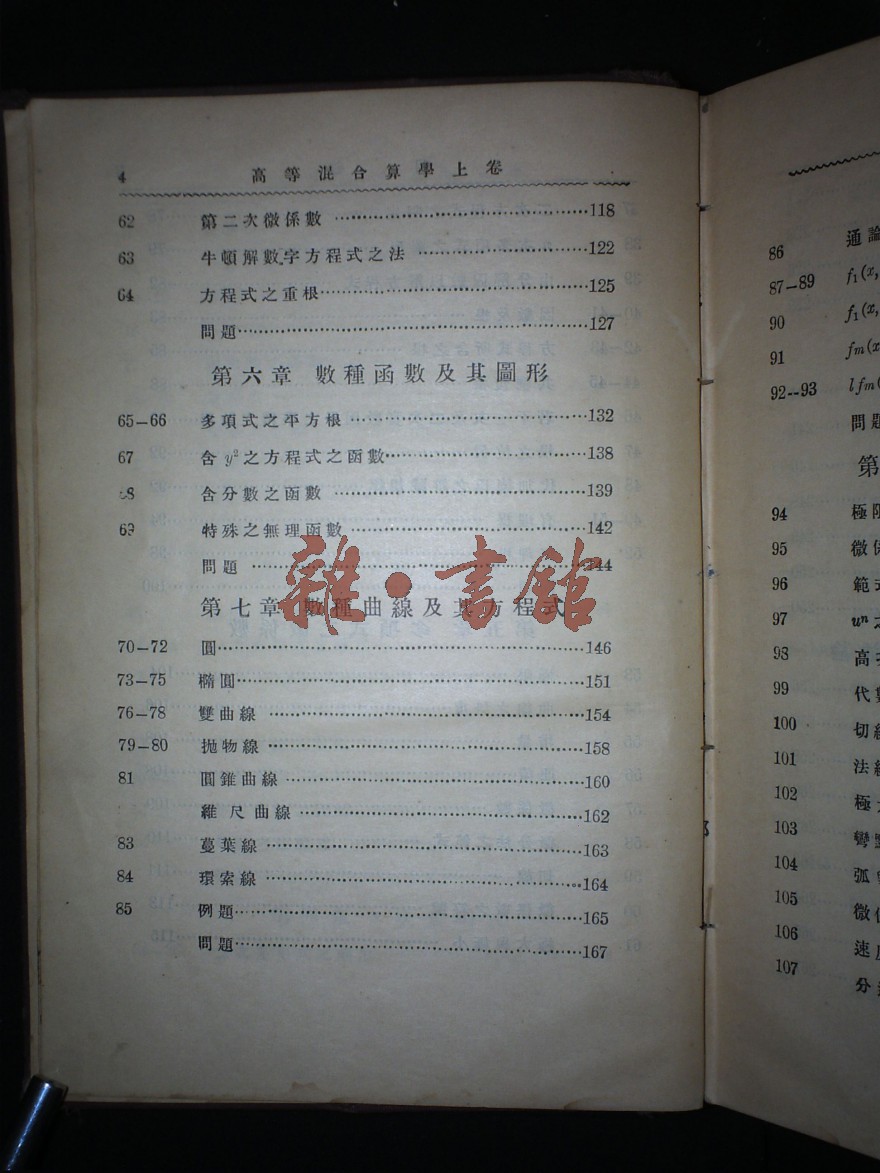 4 高等混合算學上卷
62 第二次微係數 118
63 牛頓解數字方程式之法 122
64 方程式之重根 125
問題 127
第六章 數種函數及其圖形
65—66 多項式之平方根 132
67 含 y² 之方程式之函數 138
8 含分數之函數 139
69 特殊之無理函數 142
問題 144
第七章 數種曲線及其方程式
70—72 圓 146
73—75 橢圓 151
76—78 雙曲線 154
79—80 拋物線 158
81 圓錐曲線 160
維尺曲線 162
83 蔓葉線 163
84 環索線 164
85 例題 165
問題 167
雜·書館
86 通論
87—89 f₁(x,
90 f₁(x,
91 fm(x
92--93 lfm(
問題
第
94 極限
95 微係
96 範式
97 uⁿ之
98 高
99 代數
100 切線
101 法線
102 極
103 彎
104 弧
105 微係
106 速度
107 分